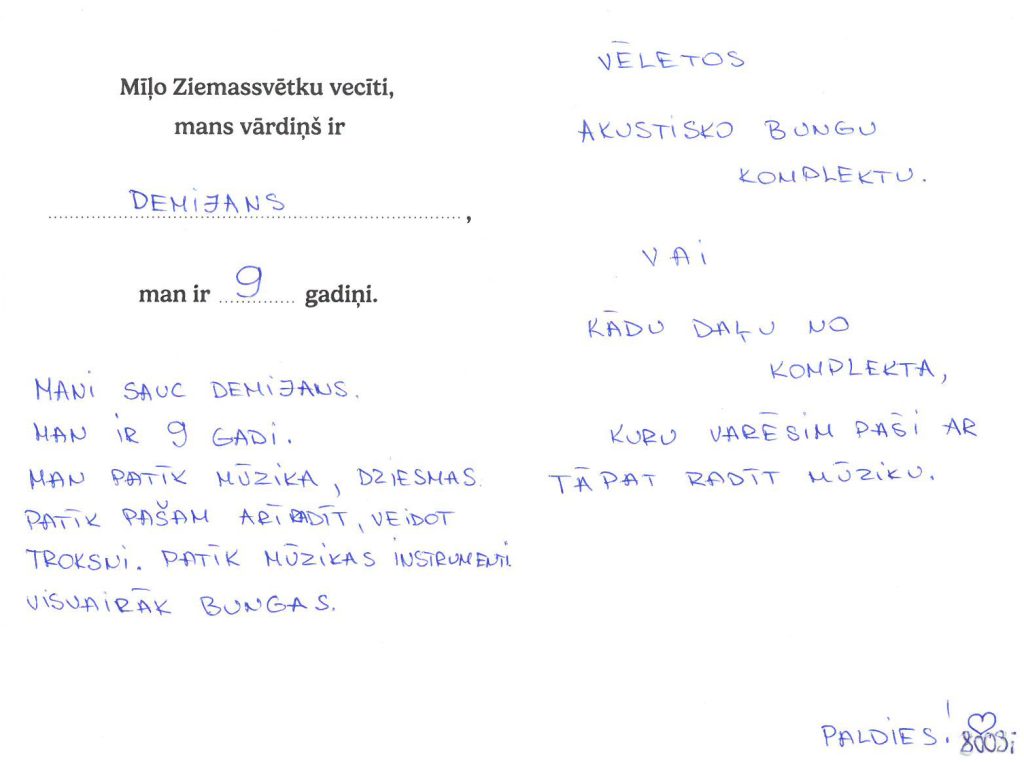 Mīļo Ziemassvētku vecīti,
mans vārdiņš ir
DEMIJANS,
man ir 9 gadiņi.
MANI SAUC DEMIJANS.
MAN IR 9 GADI.
MAN PATĪK MŪZIKA, DZIESMAS.
PATĪK PAŠAM ARĪ RADĪT, VEIDOT
TROKSNI. PATĪK MŪZIKAS INSTRUMENTI.
VISVAIRĀK BUNGAS.
VĒLETOS
AKUSTISKO BUNGU
KOMPLEKTU.
VAI
KĀDU DAĻU NO
KOMPLEKTA,
KURU VARĒSIM PAŠI AR
TĀPAT RADĪT MŪZIKU.
PALDIES! ♡
8003i